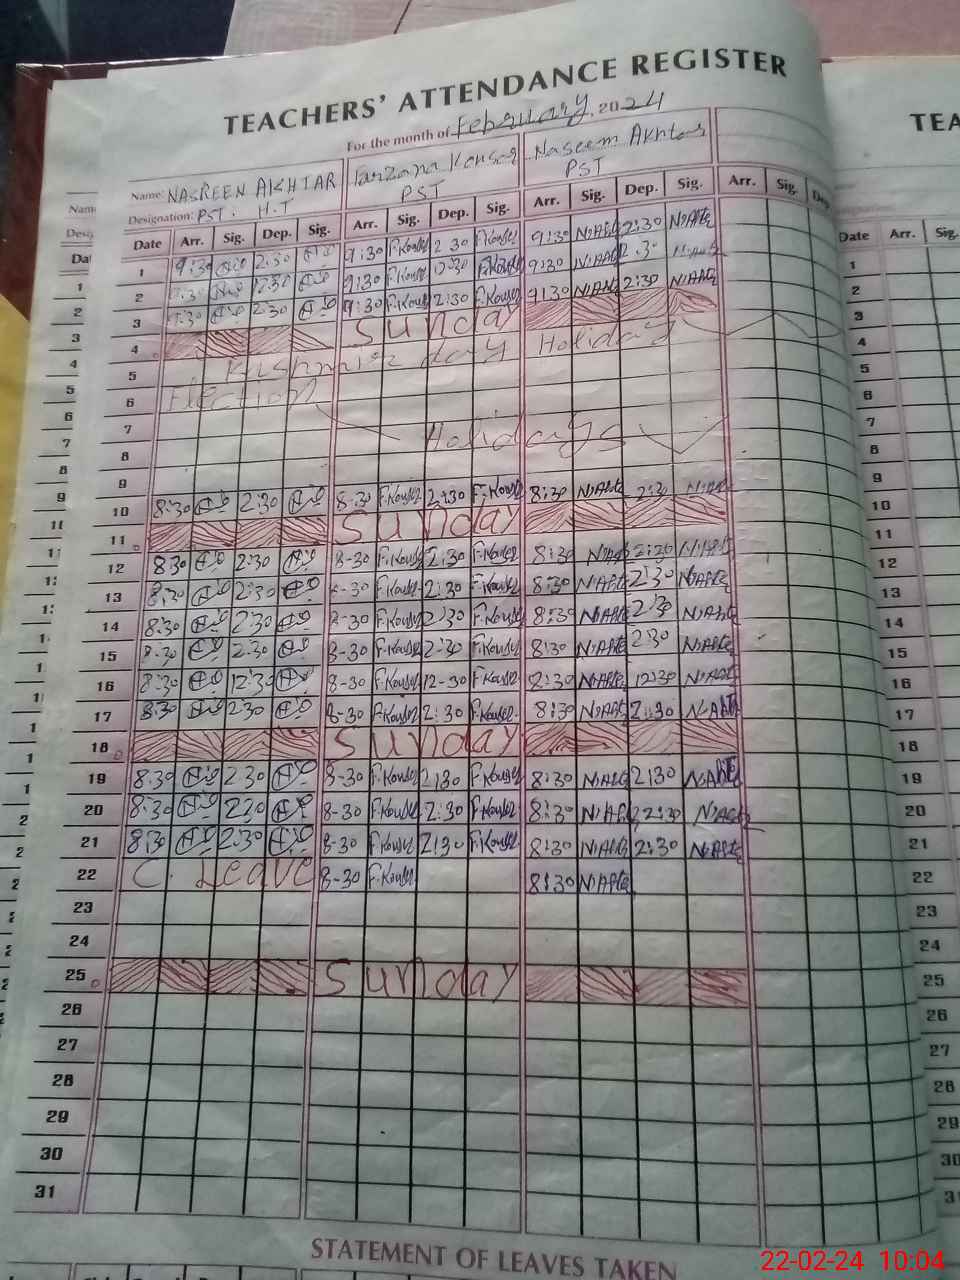 TEACHERS' ATTENDANCE REGISTER
For the month of February, 2024
Name: NASREEN AKHTAR Farzana Kousar Naseem Akhtar
Designation: PST. H.T PST PST
Date Arr. Sig. Dep. Sig. Arr. Sig. Dep. Sig. Arr. Sig. Dep. Sig. Arr. Sig. Dep.
1 9:30 2:30 9:30 F.Kouser 2 30 F.Kouser 9:30 N:Akhtar 2:30 N:Akhtar
2 9:30 2:30 9:30 F.Kouser 2:30 F.Kouser 9:30 N:Akhtar 2:30 N:Akhtar
3 9:30 2 30 9:30 F.Kouser 2:30 F.Kouser 9:30 N:Akhtar 2:30 N:Akhtar
4 Sunday
5 Kashmir day Holiday
6 Election
7 Holidays
8
9
10 8:30 2:30 8-30 F.Kouser 2:30 F.Kouser 8:30 N:Akhtar 2:30 N:Akhtar
11 Sunday
12 8:30 2:30 8-30 F.Kouser 2:30 F.Kouser 8:30 N:Akhtar 2:30 N:Akhtar
13 8:30 2:30 8-30 F.Kouser 2:30 F.Kouser 8:30 N:Akhtar 2:30 N:Akhtar
14 8:30 2:30 8-30 F.Kouser 2:30 F.Kouser 8:30 N:Akhtar 2:30 N:Akhtar
15 8:30 2:30 8-30 F.Kouser 2:30 F.Kouser 8:30 N:Akhtar 2:30 N:Akhtar
16 8:30 12:30 8-30 F.Kouser 12-30 F.Kouser 8:30 N:Akhtar 12:30 N:Akhtar
17 8:30 2:30 8-30 F.Kouser 2:30 F.Kouser 8:30 N:Akhtar 2:30 N:Akhtar
18 Sunday
19 8:30 2:30 8-30 F.Kouser 2:30 F.Kouser 8:30 N:Akhtar 2:30 N:Akhtar
20 8:30 2:30 8-30 F.Kouser 2:30 F.Kouser 8:30 N:Akhtar 2:30 N:Akhtar
21 8:30 2:30 8-30 F.Kouser 2:30 F.Kouser 8:30 N:Akhtar 2:30 N:Akhtar
22 C. Leave 8-30 F.Kouser 8:30 N:Akhtar
23
24
25 Sunday
26
27
28
29
30
31
STATEMENT OF LEAVES TAKEN
TEA
Date Arr. Sig.
1
2
3
4
5
6
7
8
9
10
11
12
13
14
15
16
17
18
19
20
21
22
23
24
25
26
27
28
29
30
22-02-24 10:04